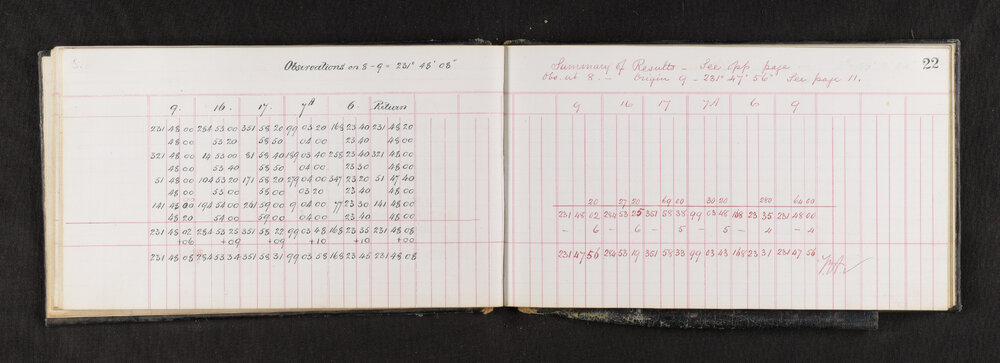 Observations on 8-9 = 231° 48' 08"
9. 16. 17. 7A 6. Return
231 48 00 284 53 00 351 58 20 99 03 20 168 23 40 231 48 20
48 00 53 20 58 50 04 00 23 40 48 00
321 48 00 14 53 00 81 58 40 189 03 40 258 23 40 321 48 00
48 00 53 40 58 50 04 00 23 30 48 00
51 48 00 104 53 20 171 58 20 279 04 00 347 23 20 51 47 40
48 00 53 00 58 00 03 20 23 40 48 00
141 48 00 194 54 00 261 59 00 9 04 00 77 23 30 141 48 00
48 20 54 00 59 00 04 00 23 40 48 00
231 48 02 284 53 25 351 58 22 99 03 48 168 23 35 231 48 08
+06 +09 +09 +10 +10 +00
231 48 08 284 53 34 351 58 31 99 03 58 168 23 45 231 48 08
22
Summary of Results - See opp page
Obs. at 8. - Origin 9 - 231° 47' 56" See page 11.
9 16 17 7A 6 9
20 27 20 69 00 30 20 280 64 00
231 48 02 284 53 25 351 58 38 99 03 48 168 23 35 231 48 00
- 6 - 6 - 5 - 5 - 4 - 4
231 47 56 284 53 19 351 58 33 99 03 43 168 23 31 231 47 56